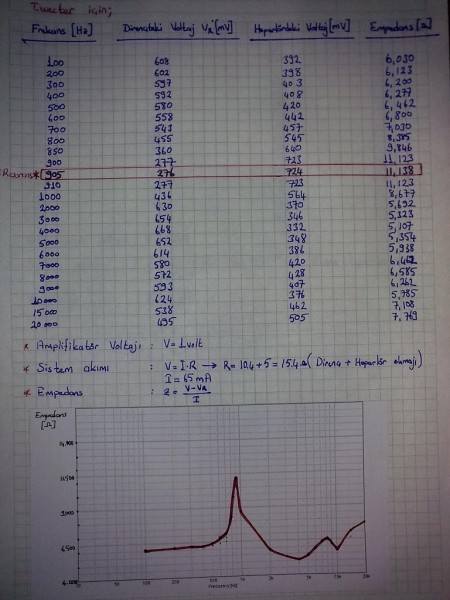 Tweeter için;
Frekans [Hz] Dirençteki Voltaj VR [mV] Hoparlördeki Voltaj [mV] Empedans [Ω]
100 608 392 6,030
200 602 398 6,123
300 597 403 6,200
400 592 408 6,277
500 580 420 6,462
600 558 442 6,800
700 543 457 7,030
800 455 545 8,385
850 360 640 9,846
900 277 723 11,123
Rezonans* 905 276 724 11,138
910 277 723 11,123
1000 436 564 8,677
2000 630 370 5,692
3000 654 346 5,323
4000 668 332 5,107
5000 652 348 5,354
6000 614 386 5,938
7000 580 420 6,462
8000 572 428 6,585
9000 593 407 6,262
10000 624 376 5,785
15000 538 462 7,108
20000 495 505 7,769
* Amplifikatör Voltajı : V = 1 volt
* Sistem akımı : V = I.R → R = 10.4 + 5 = 15.4 Ω (Direnç + Hoparlör elemajı)
I = 65 mA
* Empedans : z = V-VR / I
Empedans
[Ω]
14.000
11.500
9.000
6.500
4.000
20 50 100 200 500 1K 2K 5K 10K 20K
Frekans [Hz]